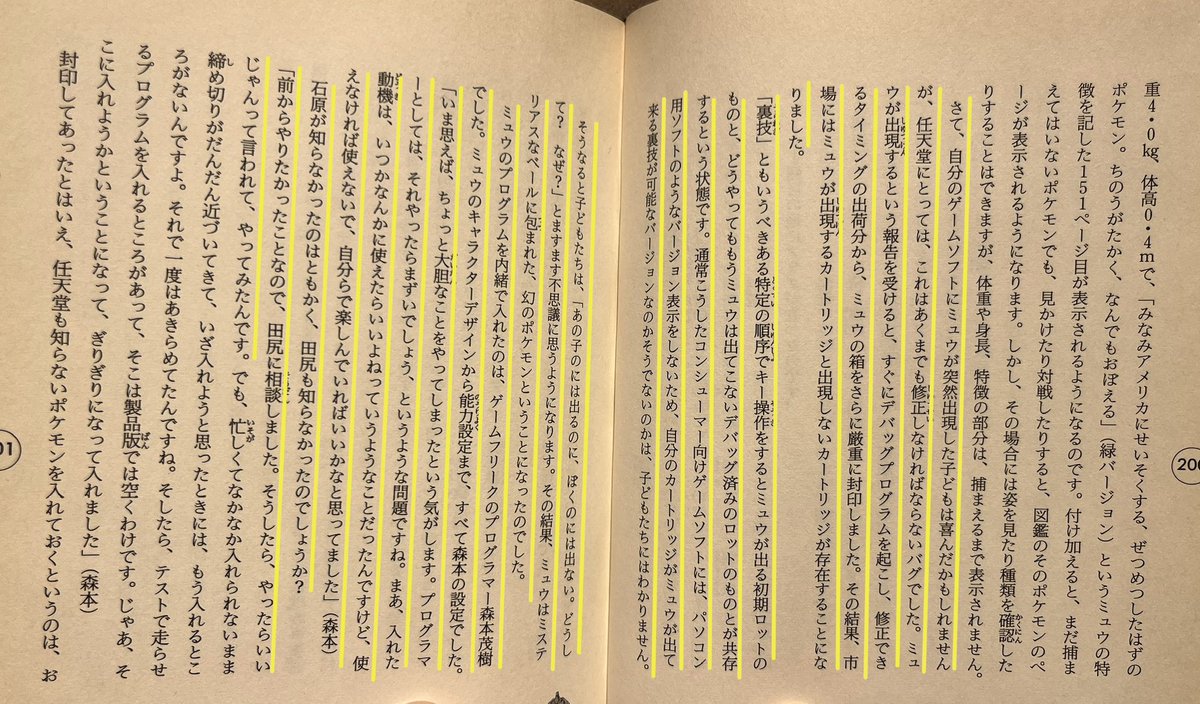 重4・0㎏、体高0・4mで、「みなみアメリカにせいそくする、ぜつめつしたはずの
ポケモン。ちのうがたかく、なんでもおぼえる」（緑バージョン）というミュウの特
徴を記した151ページ目が表示されるようになるのです。付け加えると、まだ捕ま
えてはいないポケモンでも、見かけたり対戦したりすると、図鑑のそのポケモンのペ
ージが表示されるようになります。しかし、その場合には姿を見たり種類を確認した
りすることはできますが、体重や身長、特徴の部分は、捕まえるまで表示されません。
さて、自分のゲームソフトにミュウが突然出現した子どもは喜んだかもしれません
が、任天堂にとっては、これはあくまでも修正しなければならないバグでした。ミュ
ウが出現するという報告を受けると、すぐにデバッグプログラムを起こし、修正でき
るタイミングの出荷分から、ミュウの箱をさらに厳重に封印しました。その結果、市
場にはミュウが出現するカートリッジと出現しないカートリッジが存在することにな
りました。
「裏技」ともいうべきある特定の順序でキー操作をするとミュウが出る初期ロットの
ものと、どうやってももうミュウは出てこないデバッグ済みのロットのものとが共存
するという状態です。通常こうしたコンシューマー向けゲームソフトには、パソコン
用ソフトのようなバージョン表示をしないため、自分のカートリッジがミュウが出て
来る裏技が可能なバージョンなのかそうでないのかは、子どもたちにはわかりません。
200
そうなると子どもたちは、「あの子のには出るのに、ぼくのには出ない。どうし
て？　なぜ？」とますます不思議に思うようになります。その結果、ミュウはミステ
リアスなベールに包まれた、幻のポケモンということになったのでした。
ミュウのプログラムを内緒で入れたのは、ゲームフリークのプログラマー森本茂樹
でした。ミュウのキャラクターデザインから能力設定まで、すべて森本の設定でした。
「いま思えば、ちょっと大胆なことをやってしまったという気がします。プログラマ
ーとしては、それやったらまずいでしょう、というような問題ですね。まあ、入れた
動機は、いつかなんかに使えたらいいよねっていうようなことだったんですけど、使
えなければ使えないで、自分らで楽しんでいればいいかなと思ってました」（森本）
石原が知らなかったのはともかく、田尻も知らなかったのでしょうか？
「前からやりたかったことなので、田尻に相談しました。そうしたら、やったらいい
じゃんって言われて、やってみたんです。でも、忙しくてなかなか入れられないまま
締め切りがだんだん近づいてきて、いざ入れようと思ったときには、もう入れるとこ
ろがないんですよ。それで一度はあきらめてたんですね。そしたら、テストで走らせ
るプログラムを入れるところがあって、そこは製品版では空くわけです。じゃあ、そ
こに入れようかということになって、ぎりぎりになって入れました」（森本）
封印してあったとはいえ、任天堂も知らないポケモンを入れておくというのは、お
01